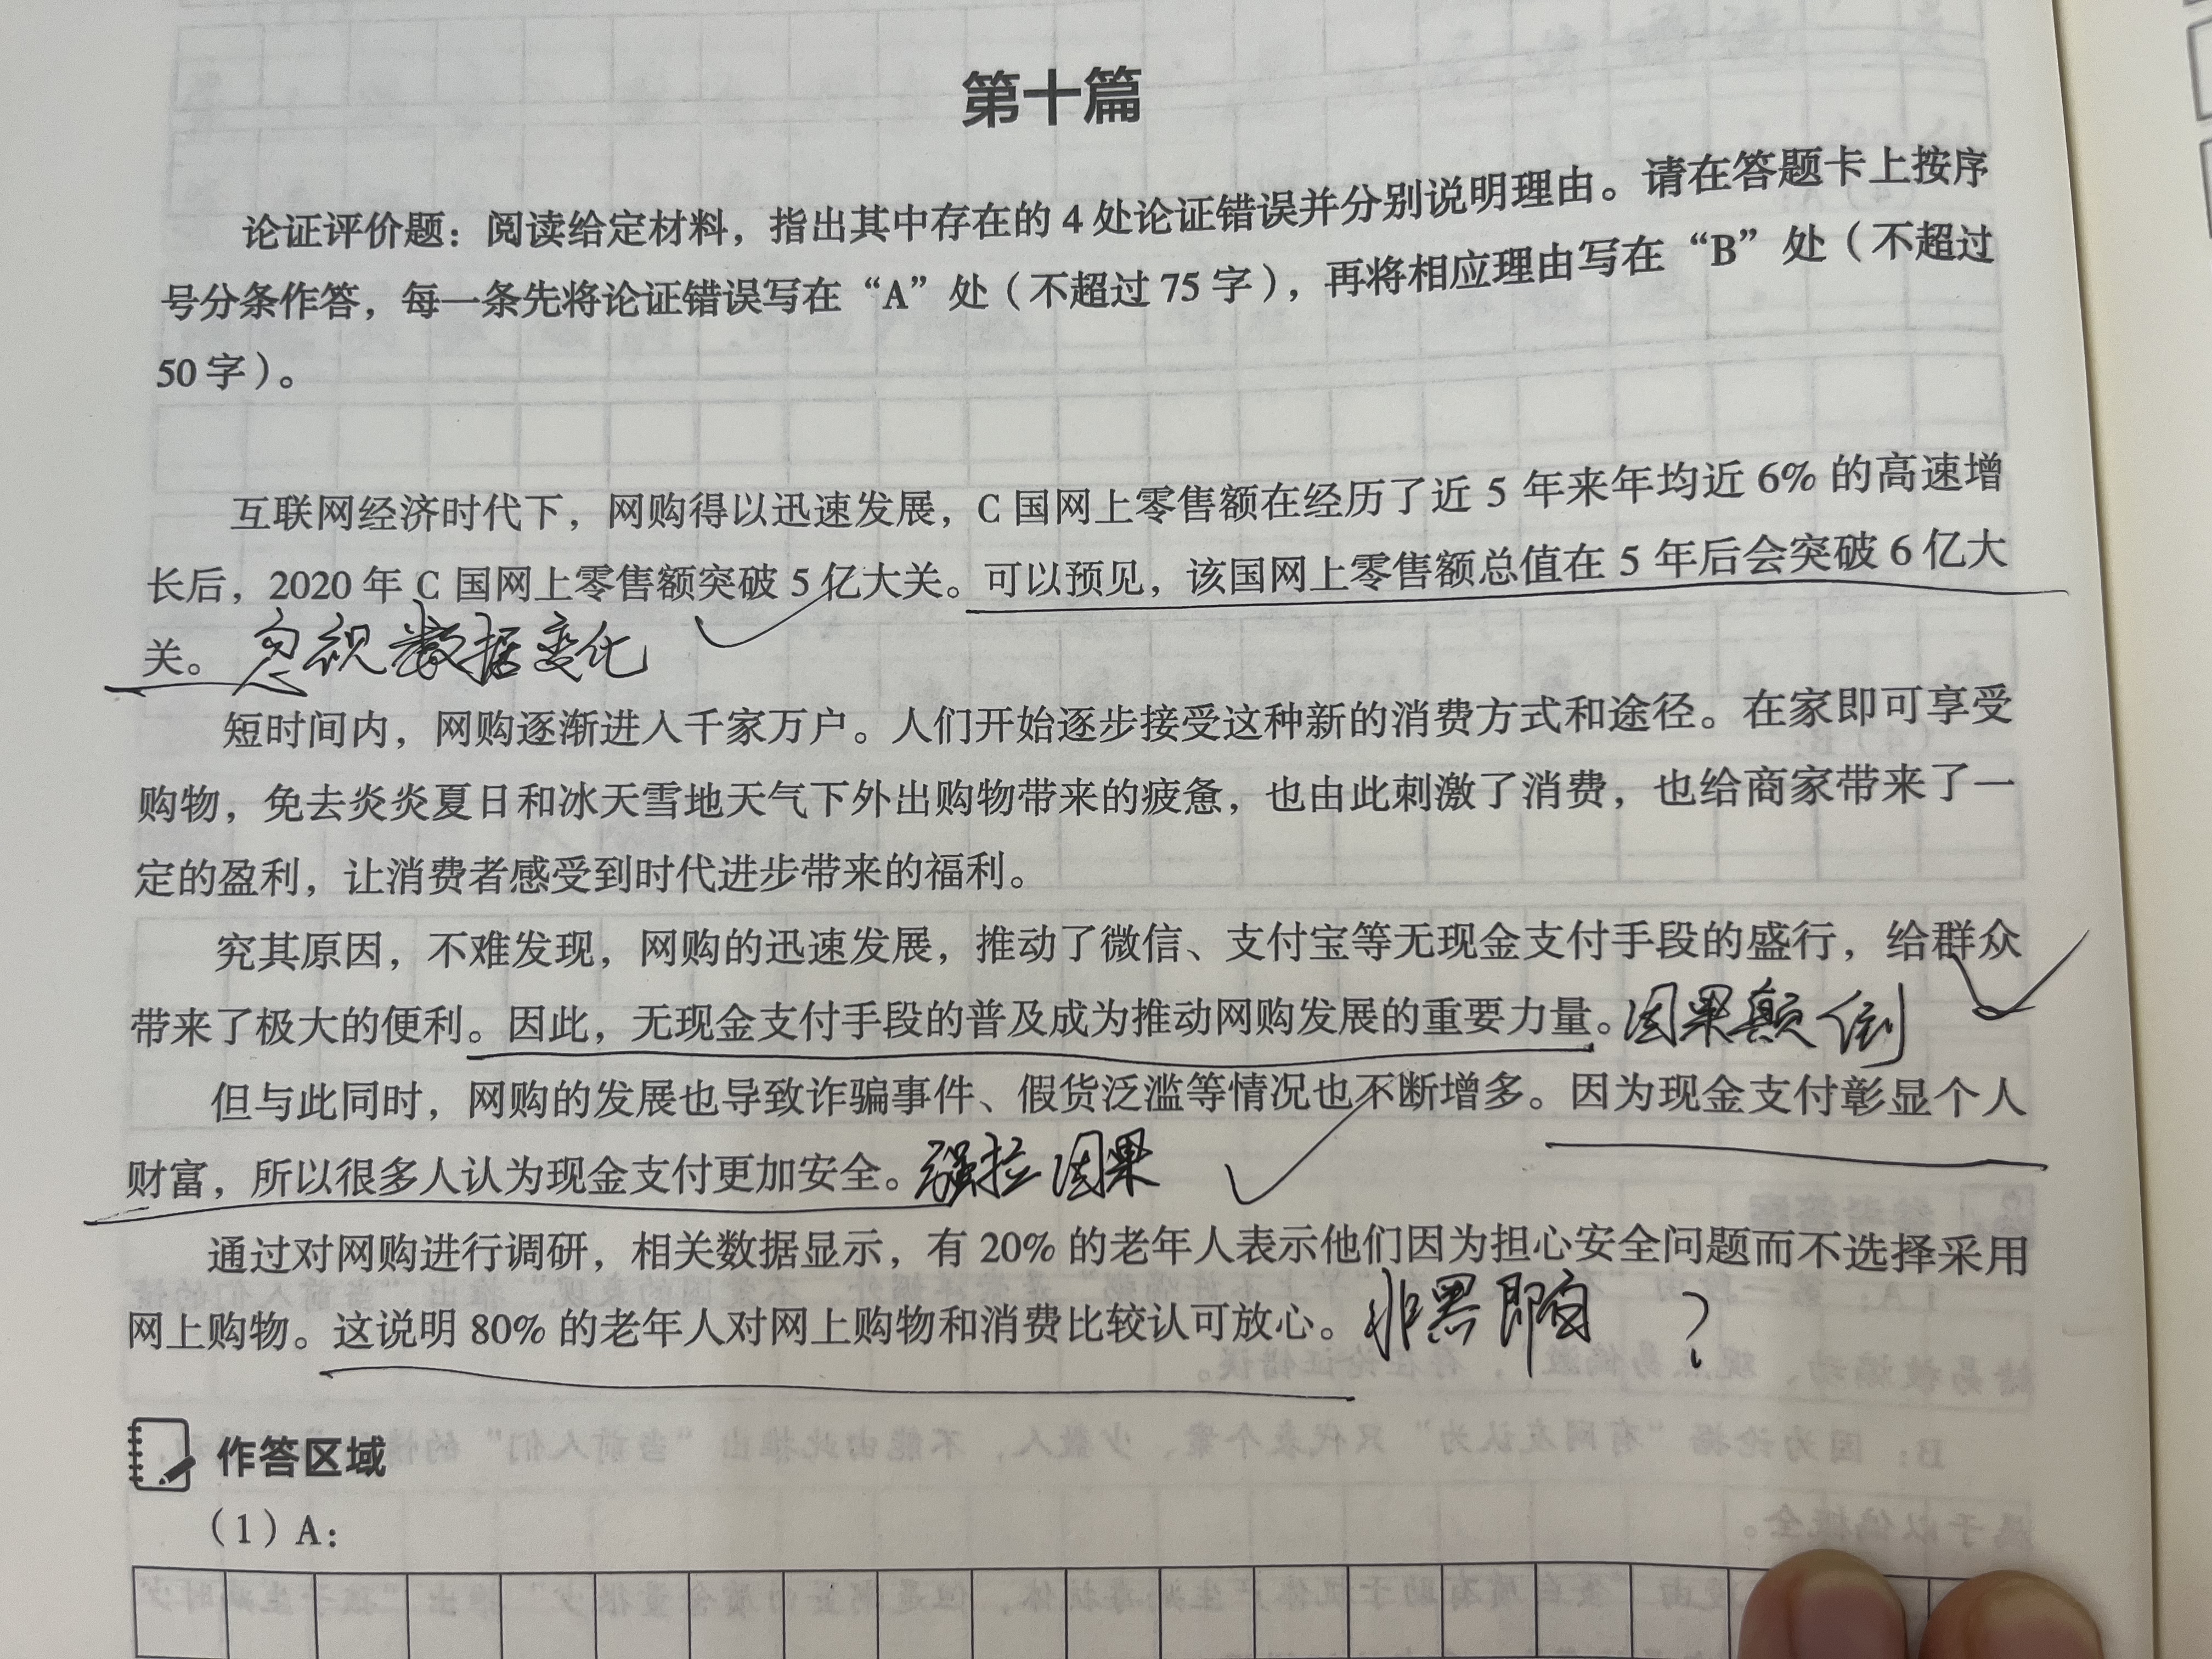 第十篇
论证评价题：阅读给定材料，指出其中存在的 4 处论证错误并分别说明理由。请在答题卡上按序
号分条作答，每一条先将论证错误写在“A”处（不超过 75 字），再将相应理由写在“B”处（不超过
50 字）。
互联网经济时代下，网购得以迅速发展，C 国网上零售额在经历了近 5 年来年均近 6% 的高速增
长后，2020 年 C 国网上零售额突破 5 亿大关。可以预见，该国网上零售额总值在 5 年后会突破 6 亿大
关。 忽视数据变化
短时间内，网购逐渐进入千家万户。人们开始逐步接受这种新的消费方式和途径。在家即可享受
购物，免去炎炎夏日和冰天雪地天气下外出购物带来的疲惫，也由此刺激了消费，也给商家带来了一
定的盈利，让消费者感受到时代进步带来的福利。
究其原因，不难发现，网购的迅速发展，推动了微信、支付宝等无现金支付手段的盛行，给群众
带来了极大的便利。因此，无现金支付手段的普及成为推动网购发展的重要力量。因果颠倒
但与此同时，网购的发展也导致诈骗事件、假货泛滥等情况也不断增多。因为现金支付彰显个人
财富，所以很多人认为现金支付更加安全。强拉因果
通过对网购进行调研，相关数据显示，有 20% 的老年人表示他们因为担心安全问题而不选择采用
网上购物。这说明 80% 的老年人对网上购物和消费比较认可放心。非黑即白 ？
作答区域
（1）A：